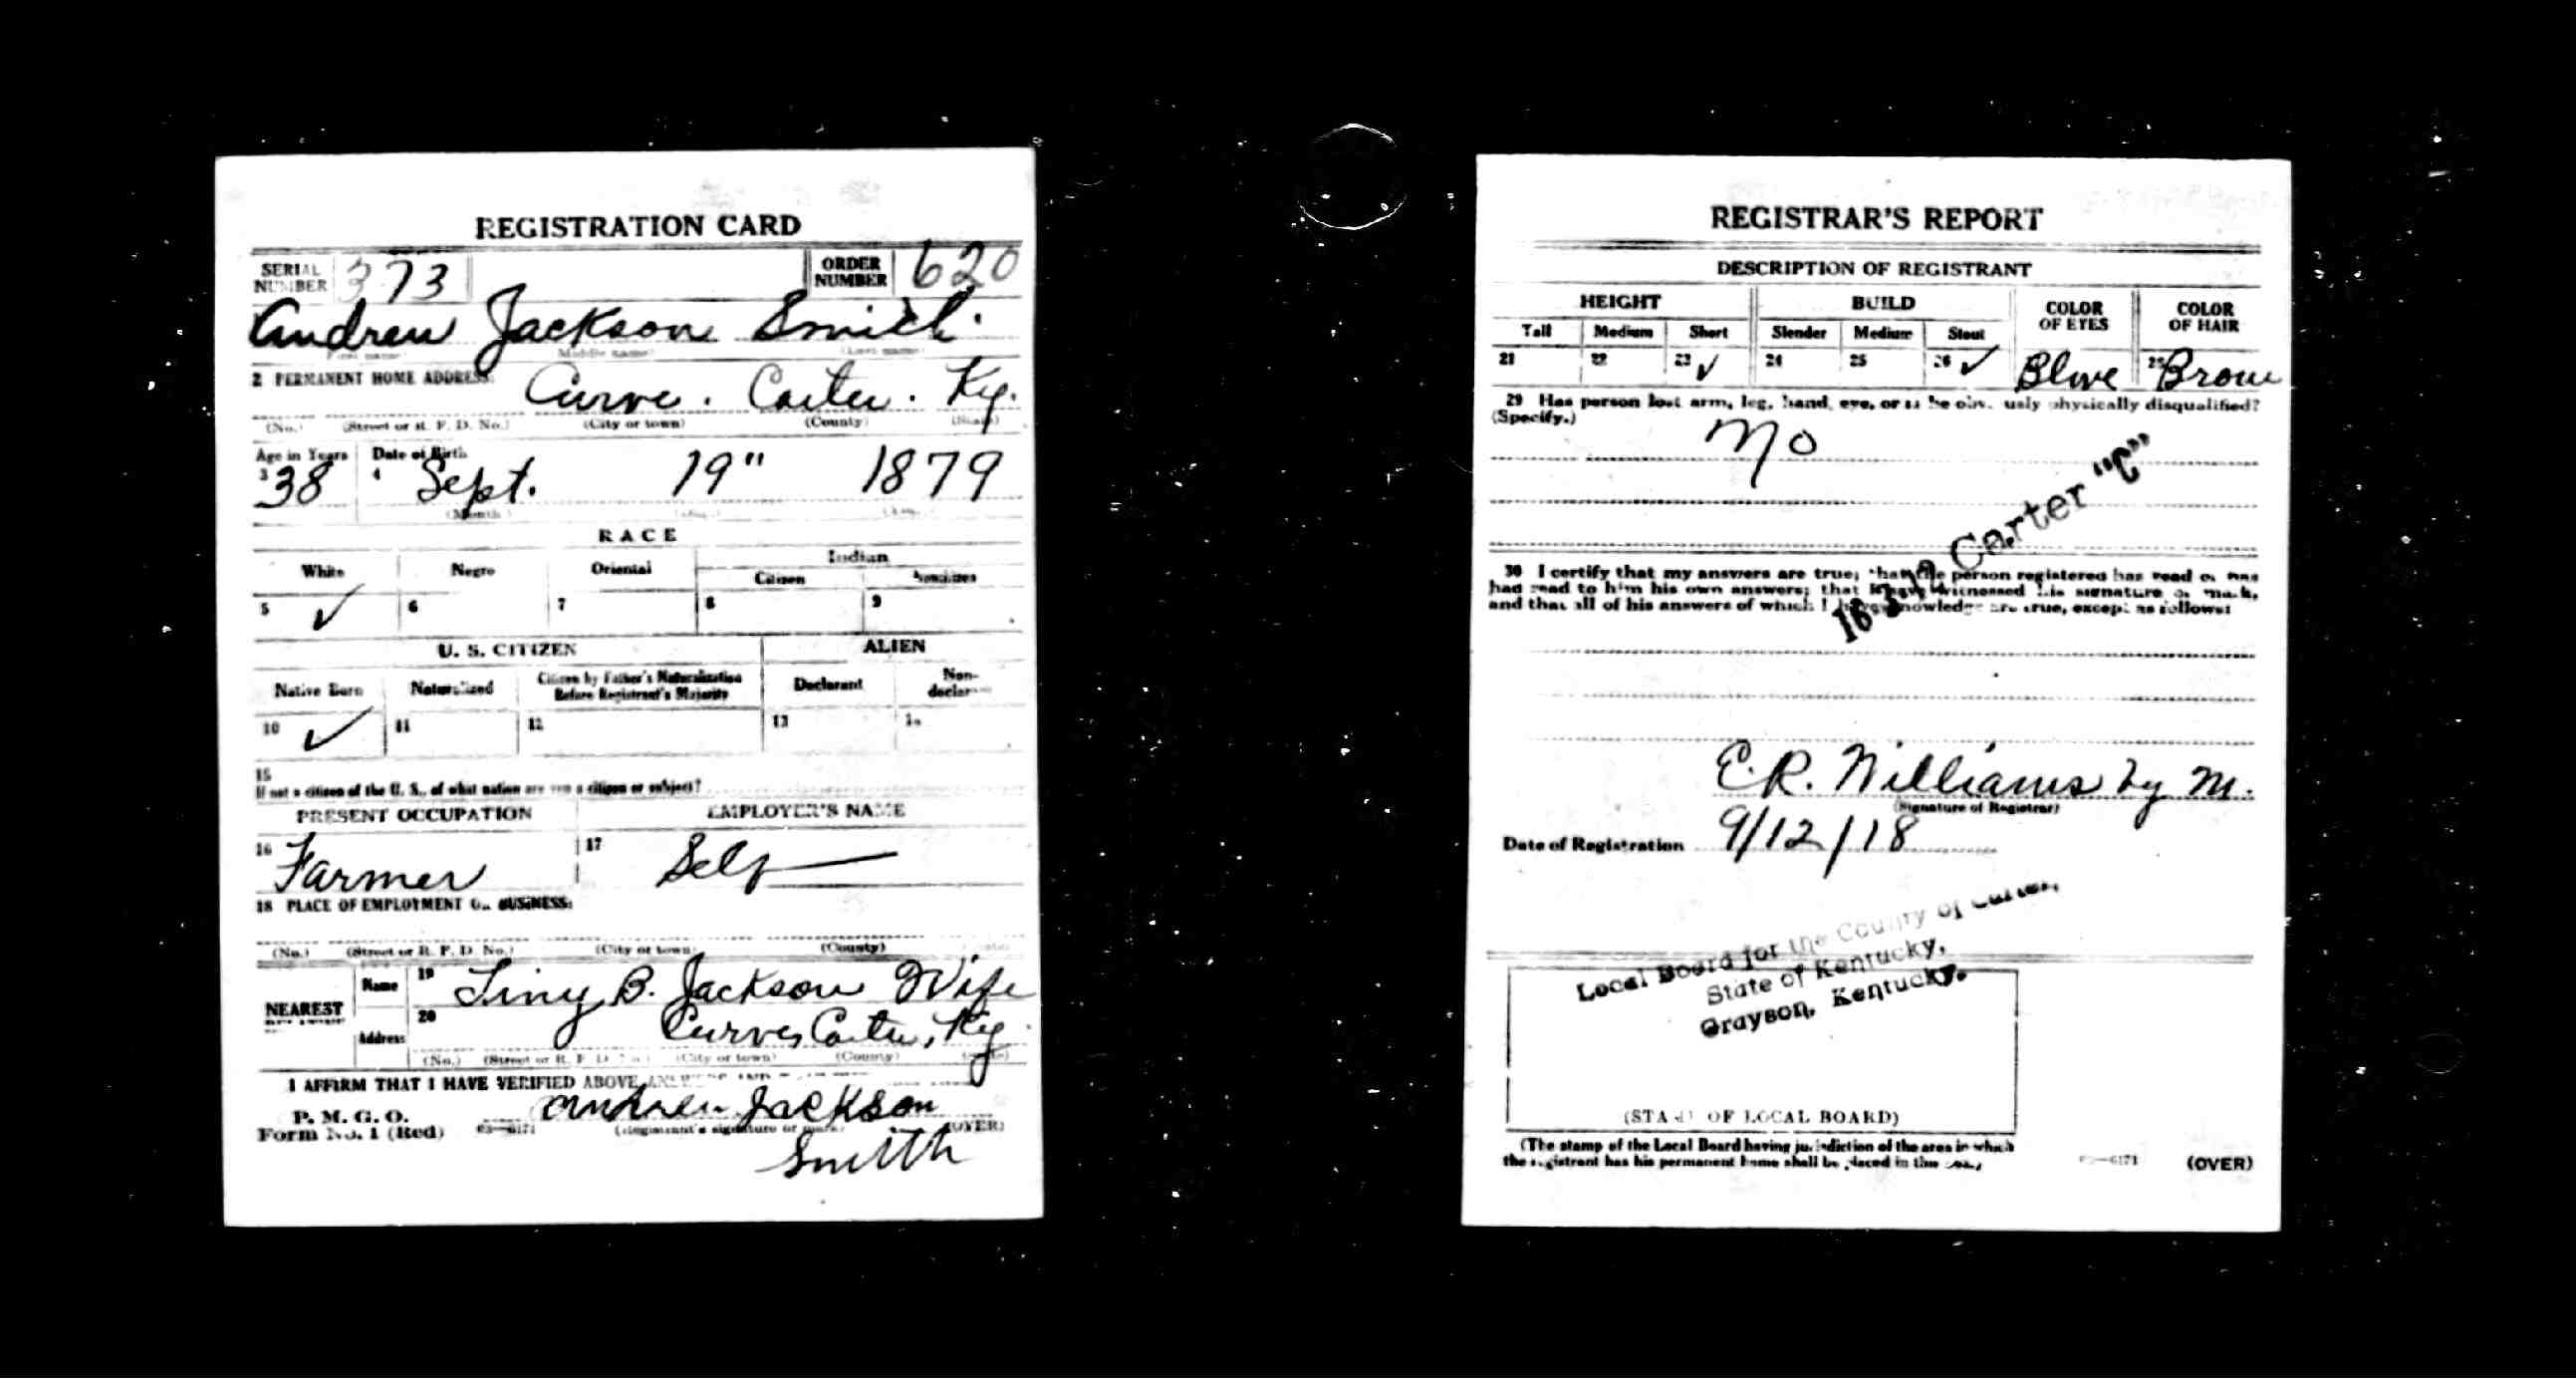 REGISTRATION CARD
SERIAL NUMBER 373 ORDER NUMBER 620
Andrew Jackson Smith
First name Middle name (Last name)
2 PERMANENT HOME ADDRESS: Curve. Carter. Ky.
(No.) (Street or R. F. D. No.) (City or town) (County) (State)
Age in Years Date of Birth
3 38 4 Sept. 19" 1879
(Month)
RACE
White Negro Oriental Indian
Citizen Noncitizen
5 ✓ 6 7 8 9
U. S. CITIZEN ALIEN
Native Born Naturalized Citizen by Father's Naturalization Before Registrant's Majority Declarant Non-declarant
10 ✓ 11 12 13
15
If not a citizen of the U. S., of what nation are you a citizen or subject?
PRESENT OCCUPATION EMPLOYER'S NAME
16 Farmer 17 Self
18 PLACE OF EMPLOYMENT OR BUSINESS:
(No.) (Street or R. F. D. No.) (City or town) (County)
NEAREST Name 19 Tiny B. Jackson Wife
Address 20 Curve, Carter, Ky
(No.) (Street or R. F. D. No.) (City or town) (County)
I AFFIRM THAT I HAVE VERIFIED ABOVE
P. M. G. O.
Form No. 1 (Red) Andrew Jackson
(Registrant's signature or mark) (OVER)
Smith
REGISTRAR'S REPORT
DESCRIPTION OF REGISTRANT
HEIGHT BUILD COLOR OF EYES COLOR OF HAIR
Tall Medium Short Slender Medium Stout
21 22 23 ✓ 24 25 26 ✓ Blue Brown
29 Has person lost arm, leg, hand, eye, or is he obviously physically disqualified?
(Specify.) No
Carter "C"
30 I certify that my answers are true; that the person registered has read or has
had read to him his own answers; that I have witnessed his signature or mark,
and that all of his answers of which I have knowledge are true, except as follows:
E. R. Williams by M.
(Signature of Registrar)
Date of Registration 9/12/18
Local Board for the County of Carter,
State of Kentucky,
Grayson, Kentucky.
(STAMP OF LOCAL BOARD)
(The stamp of the Local Board having jurisdiction of the area in which
the registrant has his permanent home shall be placed in this box.)
(OVER)